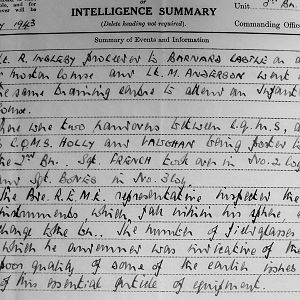 INTELLIGENCE SUMMARY
(Delete heading not required).
Unit
Commanding Officer
1943
Summary of Events and Information
R. INGLEBY proceeded to BARNARD CASTLE on a
mortar course and Lt. M. ANDERSON went to
the same training centre to attend an Infant
course.
There were two handovers between C.Q.M.S,
C.Q.M.S. HOLLY and VAUGHAN being posted to
the 2nd Bn. Sgt. FRENCH took over in No. 2 Coy
and Sgt. BONES in No. 3 Coy.
The Bde. R.E.M.E. representative inspected the
instruments which fall within his sphere
The number of fieldglasses
which he
was indicative of the
poor quality of some of the earlier issues
of this essential article of equipment.